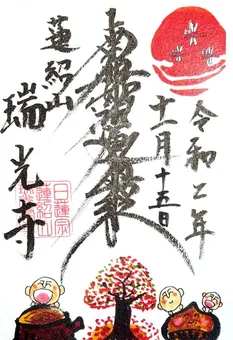 令和二年
十一月十五日
南無妙法蓮華経
蓮紹山
瑞光寺
日蓮宗
蓮紹山
瑞光寺